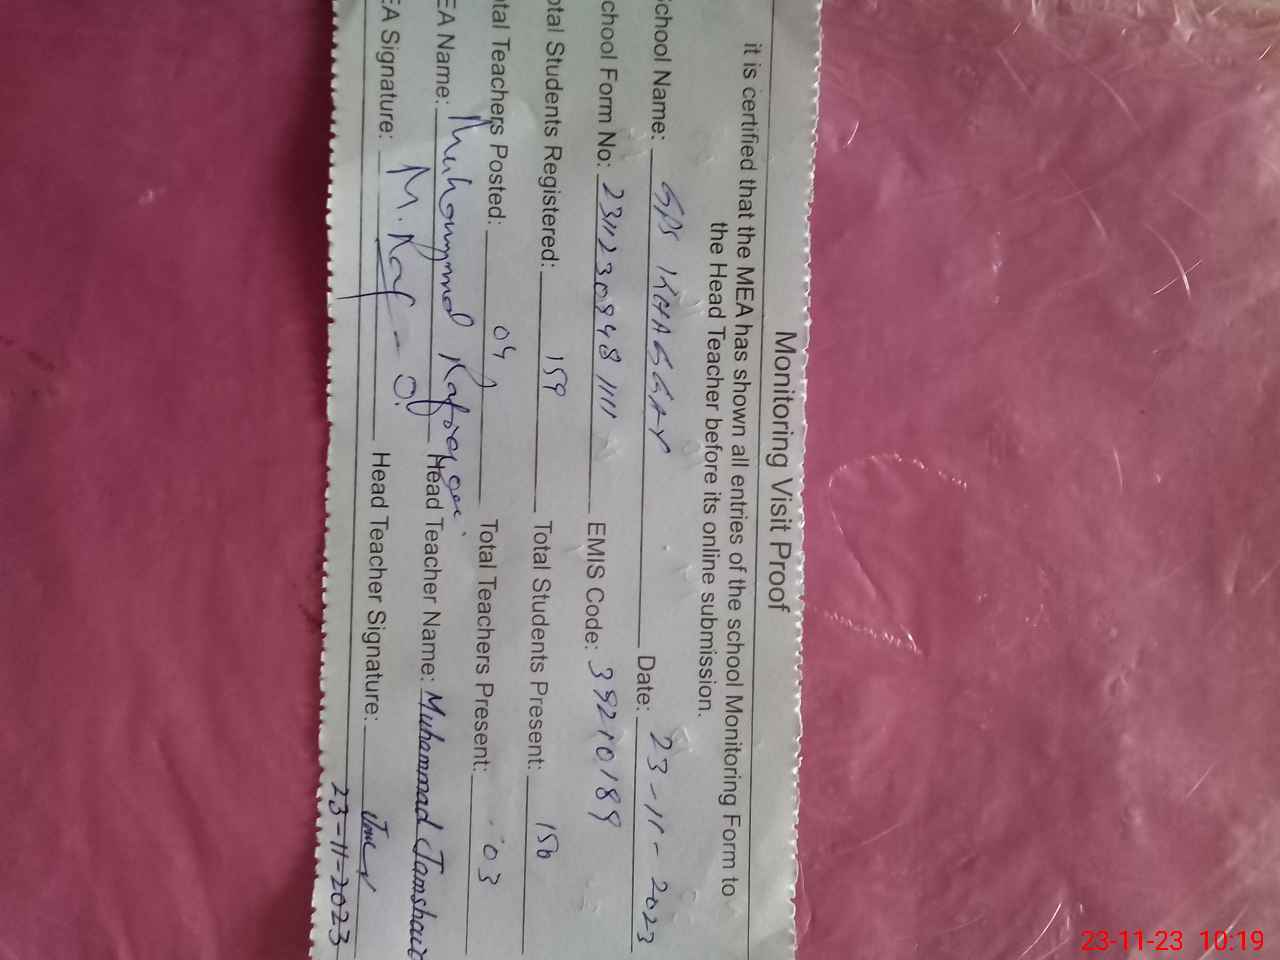 Monitoring Visit Proof
it is certified that the MEA has shown all entries of the school Monitoring Form to
the Head Teacher before its online submission.
School Name: GPS KHAGGAY Date: 23-11-2023
chool Form No: EMIS Code: 39210189
otal Students Registered: 159 Total Students Present: 150
otal Teachers Posted: 04 Total Teachers Present: 03
EA Name: Muhammad Head Teacher Name: Muhammad Jamshaid
EA Signature: Head Teacher Signature:
23-11-2023
23-11-23 10:19